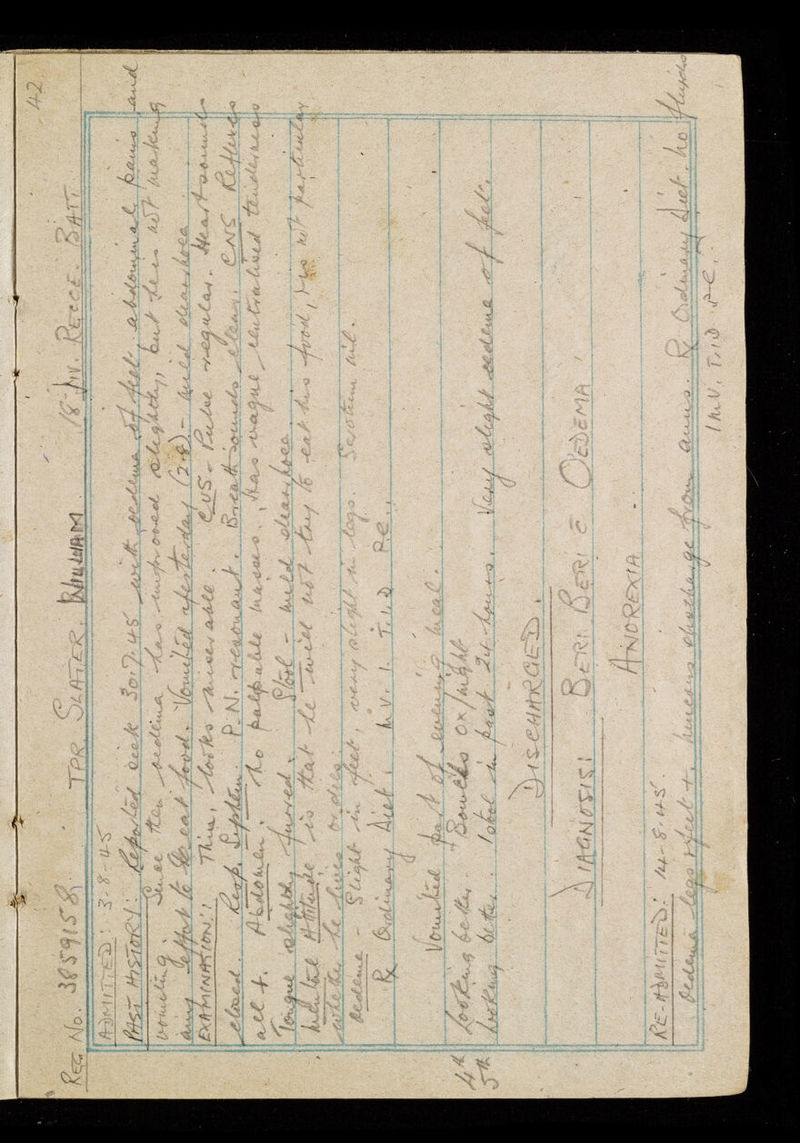 42
REG No. 3859158. TPR. SLATER. WILLIAM 18 DIV. RECCE. BATT.
ADMITTED: 3-8-45
PAST HISTORY: Reported sick 30.7.45 with oedema of feet, abdominal pains and
vomiting. Since then oedema has improved slightly, but he is not making
any effort to eat food. Vomited yesterday (2.8) - mild diarrhoea
EXAMINATION: Thin, looks miserable. CVS - Pulse regular. Heart sounds
closed. Resp. System. P.N. resonant. Breath sounds clear. CNS Reflexes
all +. Abdomen. No palpable masses. Has vague centralised tenderness
Tongue slightly furred. Stool - mild diarrhoea
Mental Attitude is that he will not try to eat his food, & is not particular
whether he lives or dies.
Oedema - Slight in feet, very slight in legs. Scrotum nil.
℞ Ordinary Diet. M.V. 1. T.I.D P.C.
Vomited part of evening meal.
4th Looking better. Bowels 0x/night
5th Looking better. 1 stool in past 24 hours. Very slight oedema of feet.
DISCHARGED.
DIAGNOSIS: BERI BERI c̄ OEDEMA
ANOREXIA
RE-ADMITTED: 14-8-45.
Oedema legs & feet +. Mucous discharge from anus. ℞ Ordinary Diet. No
1 M.V. T.I.D P.C.